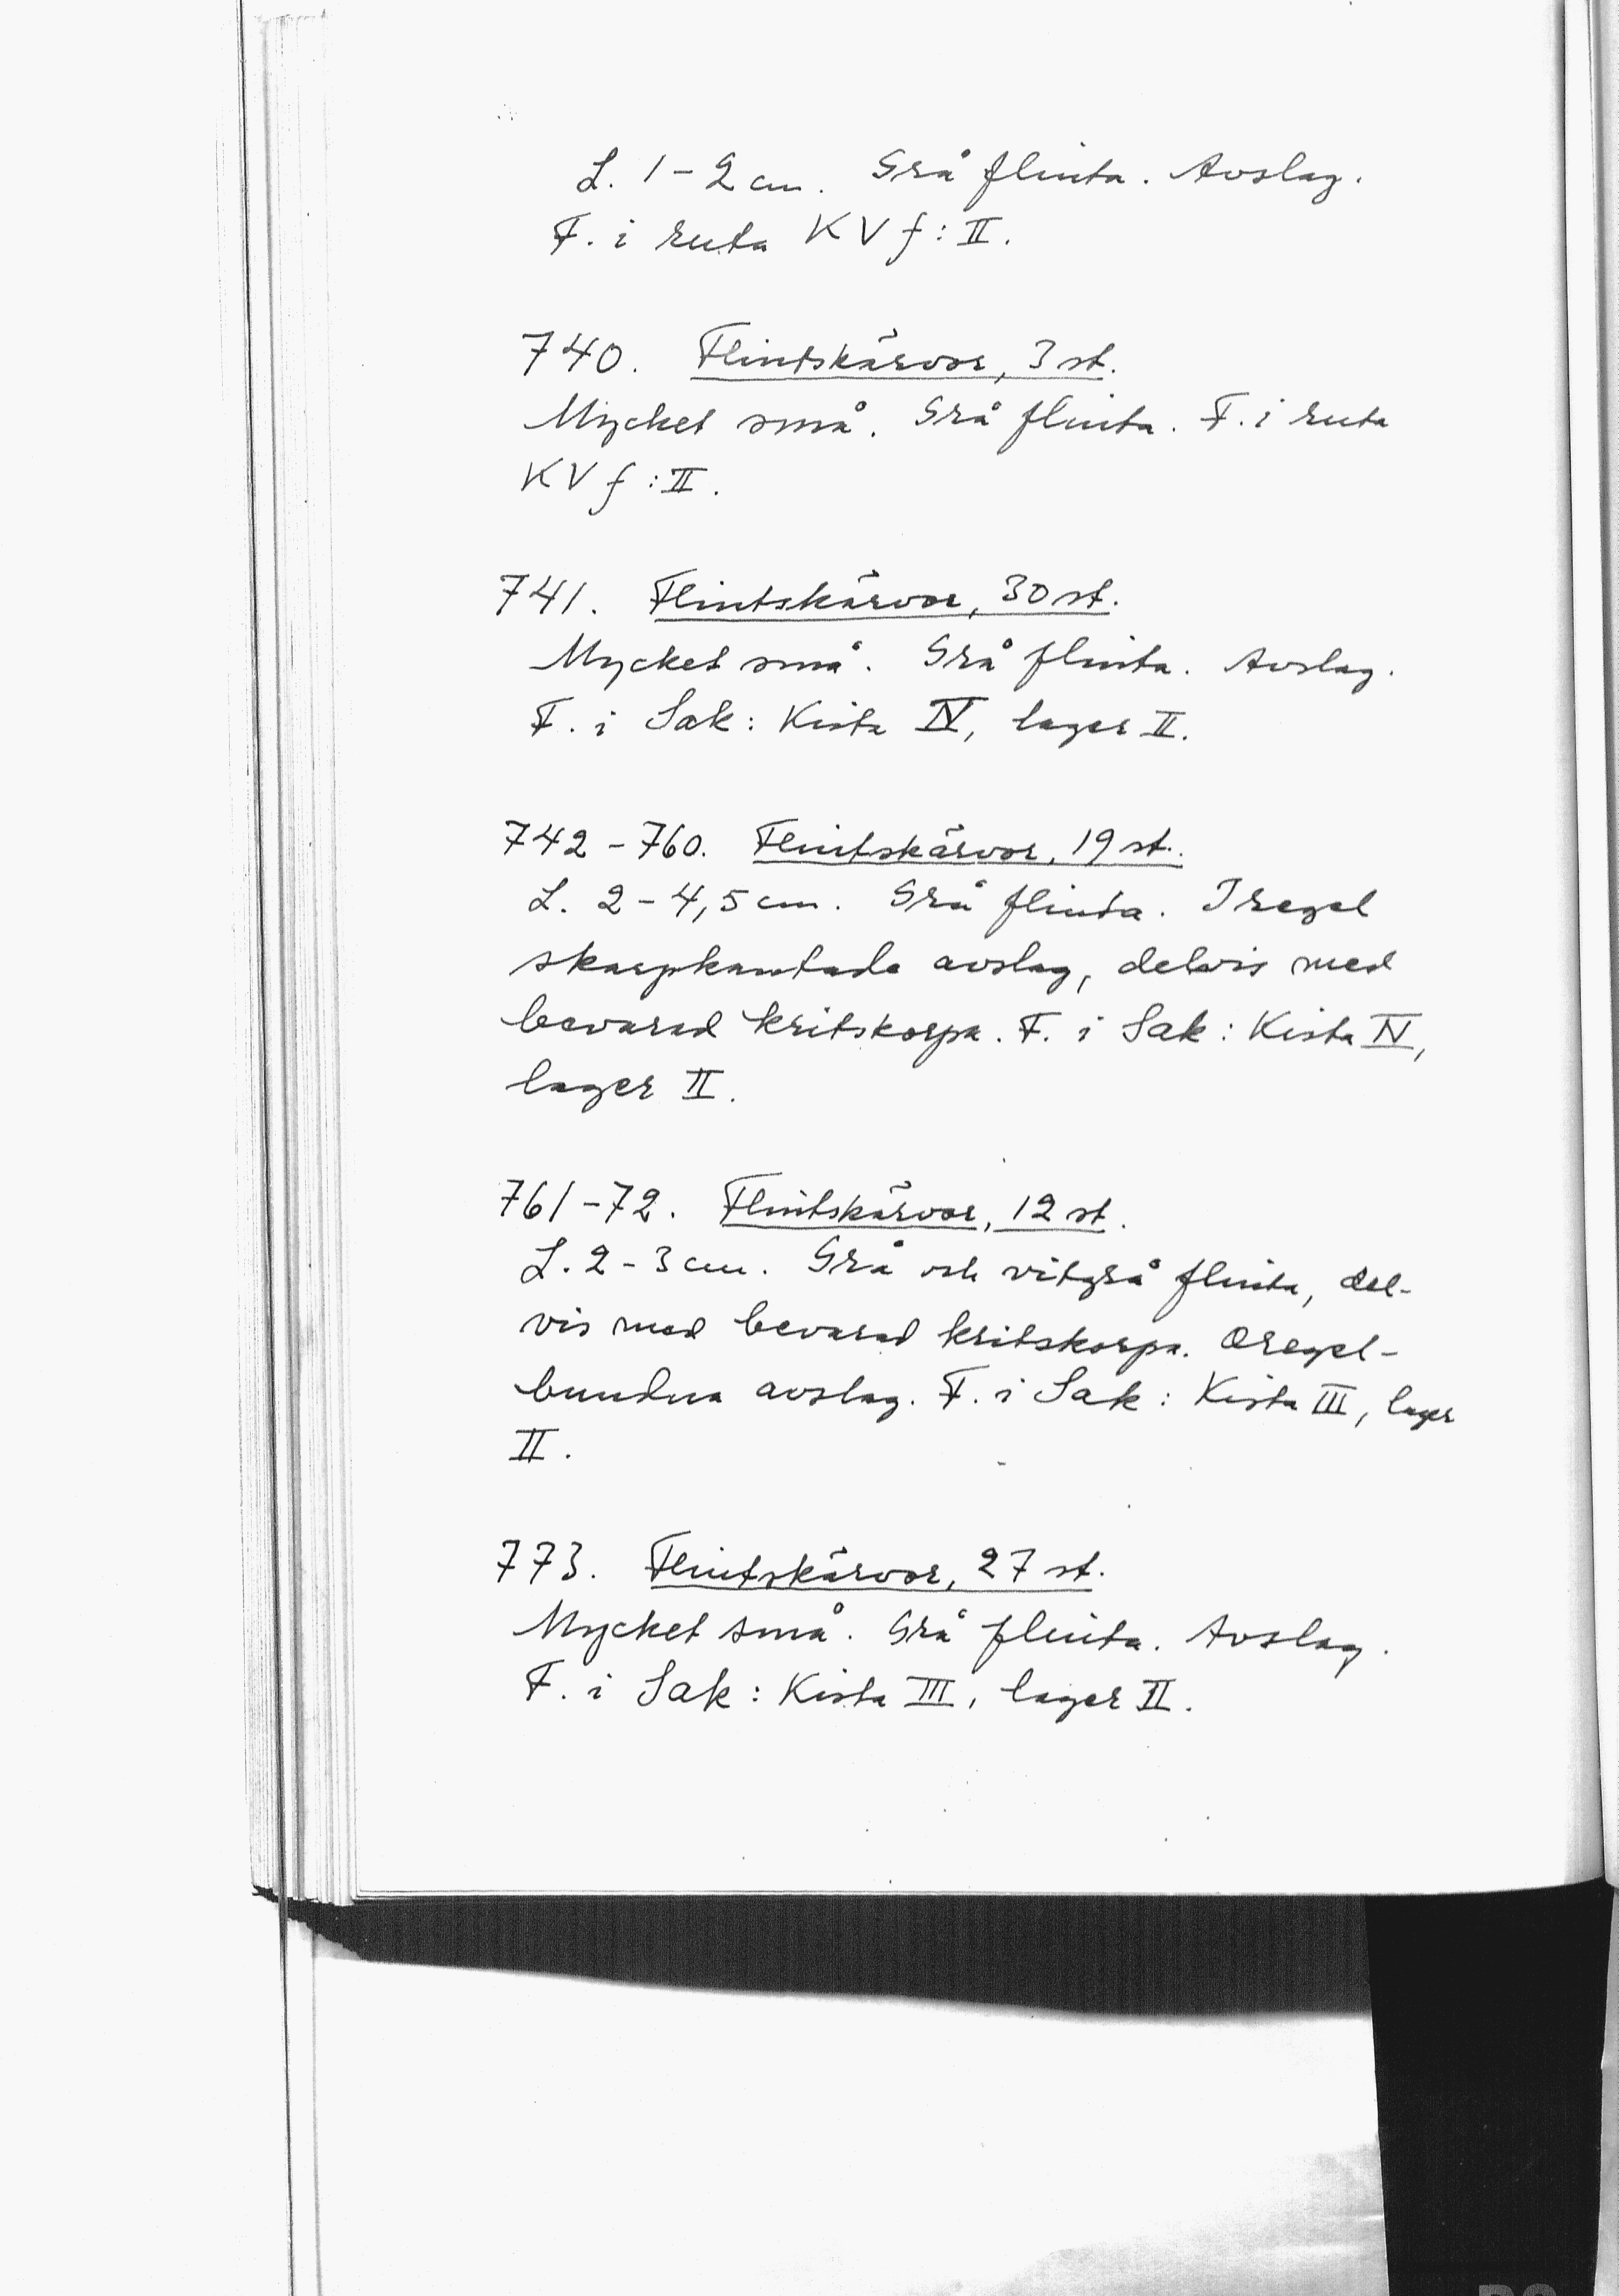 L. 1-2 cm. Grå flinta. Avslag.
F. i ruta KVf:II.
740. Flintskärvor, 3 st.
Mycket små. Grå flinta. F. i ruta
KVf:II.
741. Flintskärvor, 30 st.
Mycket små. Grå flinta. Avslag.
F. i Sak: Kista IV, lager II.
742-760. Flintskärvor, 19 st.
L. 2-4,5 cm. Grå flinta. I regel
skarpkantade avslag, delvis med
bevarad kritskorpa. F. i Sak: Kista IV,
lager II.
761-72. Flintskärvor, 12 st.
L. 2-3 cm. Grå och vitgrå flinta, del-
vis med bevarad kritskorpa. Oregel-
bundna avslag. F. i Sak: Kista III, lager
II.
773. Flintskärvor, 27 st.
Mycket små. Grå flinta. Avslag.
F. i Sak: Kista III, lager II.